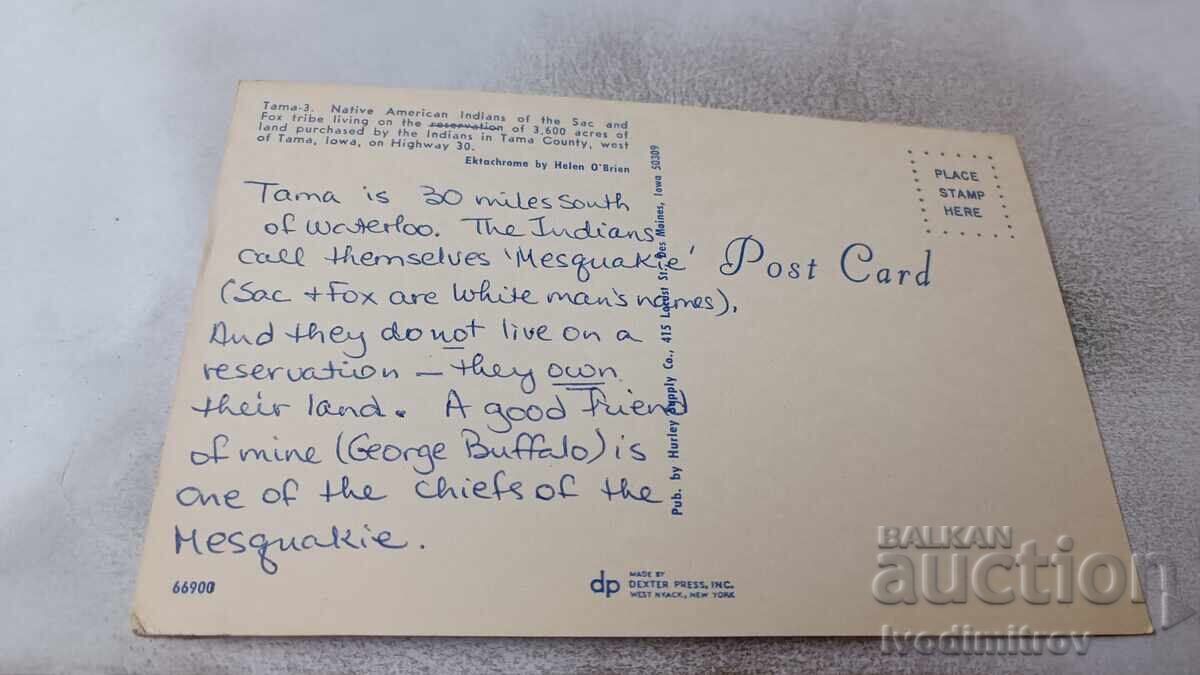 Tama-3. Native American Indians of the Sac and
Fox tribe living on the reservation of 3,600 acres of
land purchased by the Indians in Tama County, west
of Tama, Iowa, on Highway 30.
Ektachrome by Helen O'Brien
Tama is 30 miles south
of Waterloo. The Indians
call themselves 'Mesquakie'
(Sac + Fox are White man's names).
And they do not live on a
reservation – they own
their land. A good friend
of mine (George Buffalo) is
one of the chiefs of the
Mesquakie.
66900
dp
MADE BY
DEXTER PRESS, INC.
WEST NYACK, NEW YORK
Pub. by Hurley Supply Co., 415 Locust St., Des Moines, Iowa 50309
Post Card
PLACE
STAMP
HERE
BALKAN
auction
Ivodimitrov